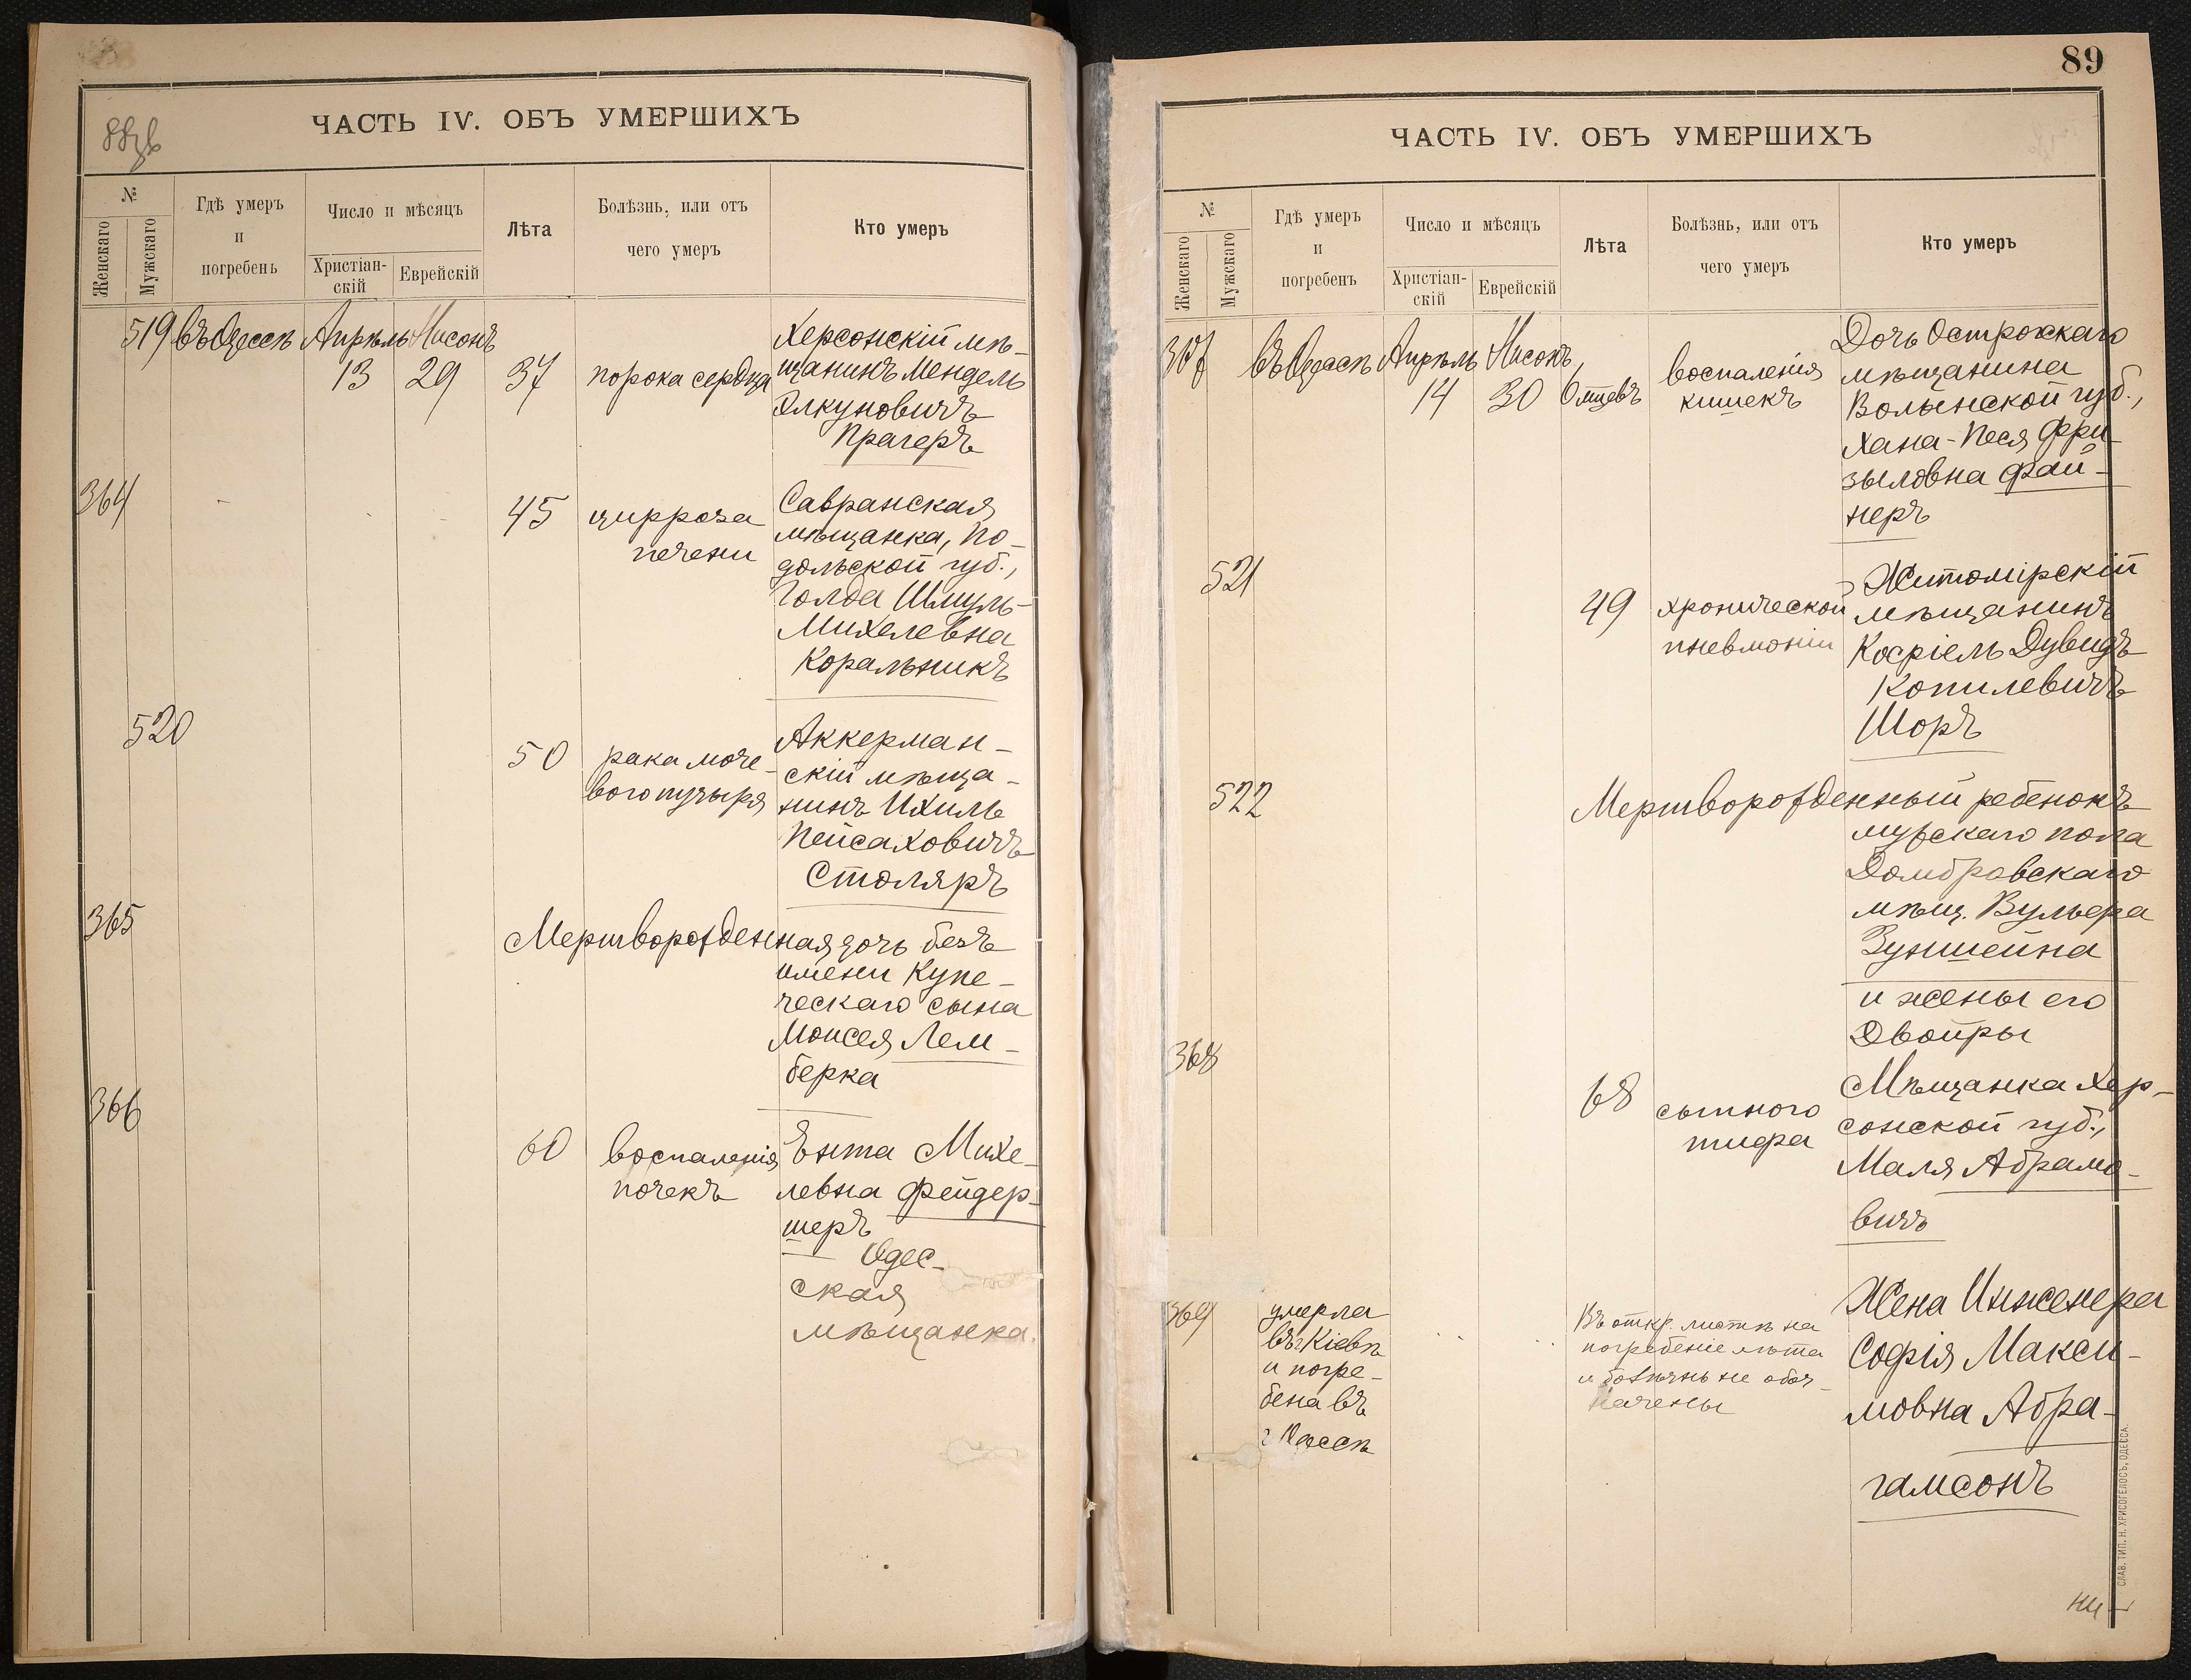 88об
ЧАСТЬ IV. ОБЪ УМЕРШИХЪ
№
Женскаго
Мужскаго
Гдѣ умеръ
и
погребенъ
Число и мѣсяцъ
Христіан-
скій
Еврейскій
Лѣта
Болѣзнь, или отъ
чего умеръ
Кто умеръ
519 въ Одессѣ Апрѣль Нисонъ
13 29 37 порока сердца
Херсонскій мѣ-
щанинъ Мендель
Элкуновичъ
Прагеръ
364
45 цирроза
печени
Савранская
мѣщанка, По-
дольской губ.,
Голда Шмуль-
Михелевна
Коральникъ
520
50 рака моче-
вого пузыря
Аккерман-
скій мѣща-
нинъ Ихиль
Пейсаховичъ
Столяръ
365
Мертворожденная дочь безъ
имени Купе-
ческаго сына
Моисея Лем-
берка
366
60 воспаленія
почекъ
Ента Михе-
левна Фейдер-
шеръ
Одес-
ская
мѣщанка.
89
ЧАСТЬ IV. ОБЪ УМЕРШИХЪ
№
Женскаго
Мужскаго
Гдѣ умеръ
и
погребенъ
Число и мѣсяцъ
Христіан-
скій
Еврейскій
Лѣта
Болѣзнь, или отъ
чего умеръ
Кто умеръ
367 въ Одессѣ Апрѣль Нисонъ
14 30 6 мцевъ
воспаленія
кишекъ
Дочь Острожскаго
мѣщанина
Волынской губ.,
Хана-Песя Фри-
зыловна Фай-
неръ
521
49 хронической
пневмоніи
Житомірскій
мѣщанинъ
Косріель Дувидъ
Копилевичъ
Шоръ
522
Мертворожденный ребенокъ
мужскаго пола
Домбровскаго
мѣщ. Вульфа
Зунштейна
и жены его
Двойры
368
68 сыпного
тифа
Мѣщанка Хер-
сонской губ.,
Маля Абрамо-
вичъ
369
умерла
въ г. Кіевѣ
и погре-
бена въ
г. Одессѣ
Въ откр. листкѣ на
погребеніе лѣта
и болѣзнь не обоз-
начены
Жена Инженера
Софія Макси-
мовна Абра-
гамсонъ
СЛАВ. ТИП. Н. ХРИСОГЕЛОСЪ, ОДЕССА.